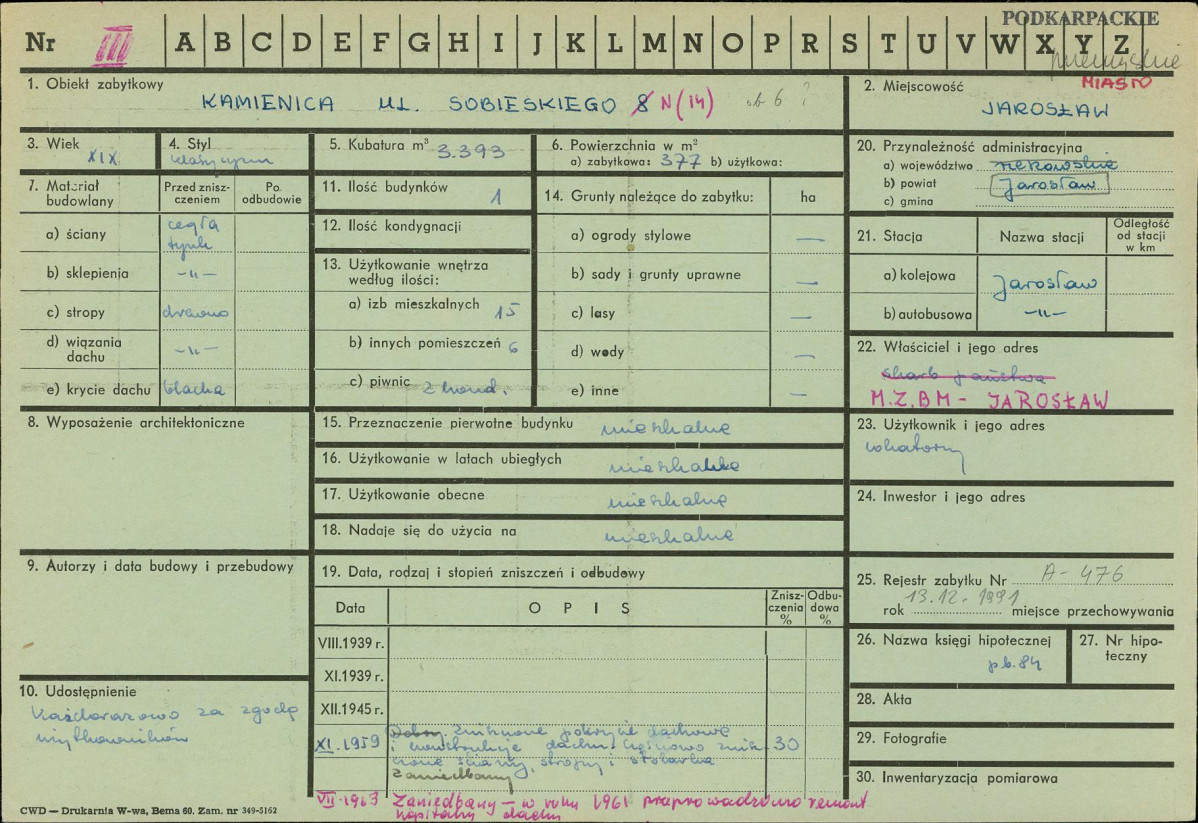 PODKARPACKIE
Nr III A B C D E F G H I J K L M N O P R S T U V W X Y Z
przemyskie
1. Obiekt zabytkowy
KAMIENICA UL. SOBIESKIEGO 8 N(14) ob 6 ?
2. Miejscowość MIASTO
JAROSŁAW
3. Wiek
XIX
4. Styl
klasycyzm
5. Kubatura m³ 3.393
6. Powierzchnia w m²
a) zabytkowa: 377 b) użytkowa:
20. Przynależność administracyjna
a) województwo rzeszowskie
b) powiat Jarosław
c) gmina
7. Materiał budowlany
Przed zniszczeniem
Po odbudowie
a) ściany cegła tynk
b) sklepienia -„-
c) stropy drewno
d) wiązania dachu -„-
e) krycie dachu blacha
11. Ilość budynków 1
12. Ilość kondygnacji
13. Użytkowanie wnętrza według ilości:
a) izb mieszkalnych 15
b) innych pomieszczeń 6
c) piwnic 2 kond.
14. Grunty należące do zabytku: ha
a) ogrody stylowe —
b) sady i grunty uprawne —
c) lasy —
d) wody —
e) inne —
21. Stacja
Nazwa stacji
Odległość od stacji w km
a) kolejowa Jarosław
b) autobusowa -„-
22. Właściciel i jego adres
skarb państwa
M.Z.B.M - JAROSŁAW
8. Wyposażenie architektoniczne
15. Przeznaczenie pierwotne budynku mieszkalne
16. Użytkowanie w latach ubiegłych mieszkalne
17. Użytkowanie obecne mieszkalne
18. Nadaje się do użycia na mieszkalne
23. Użytkownik i jego adres
lokatorzy
24. Inwestor i jego adres
9. Autorzy i data budowy i przebudowy
19. Data, rodzaj i stopień zniszczeń i odbudowy
Data
OPIS
Zniszczenia %
Odbudowa %
VIII.1939 r.
XI.1939 r.
XII.1945 r.
XI.1959 Dobry. Zniszczone pokrycie dachowe
i konstrukcje dachu. Częściowo znisz- 30
czone ściany, stropy i stolarka
Zaniedbany
VII.1963 Zaniedbany – w roku 1961 przeprowadzono remont
kapitalny dachu
25. Rejestr zabytku Nr A-476
rok 13.12.1991 miejsce przechowywania
26. Nazwa księgi hipotecznej
pb.84
27. Nr hipoteczny
28. Akta
29. Fotografie
30. Inwentaryzacja pomiarowa
10. Udostępnienie
Każdorazowo za zgodą
użytkowników
CWD — Drukarnia W-wa, Bema 60. Zam. nr 349-5162